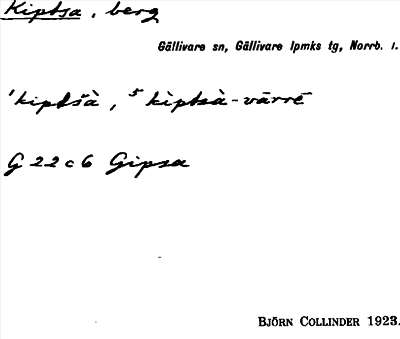 Kiptsa, berg
Gällivare sn, Gällivare lpmks tg, Norrb. l.
¹kiptšà, ⁵kìptsà-vārrē
G 22 c 6 Gipsa
BJÖRN COLLINDER 1923.